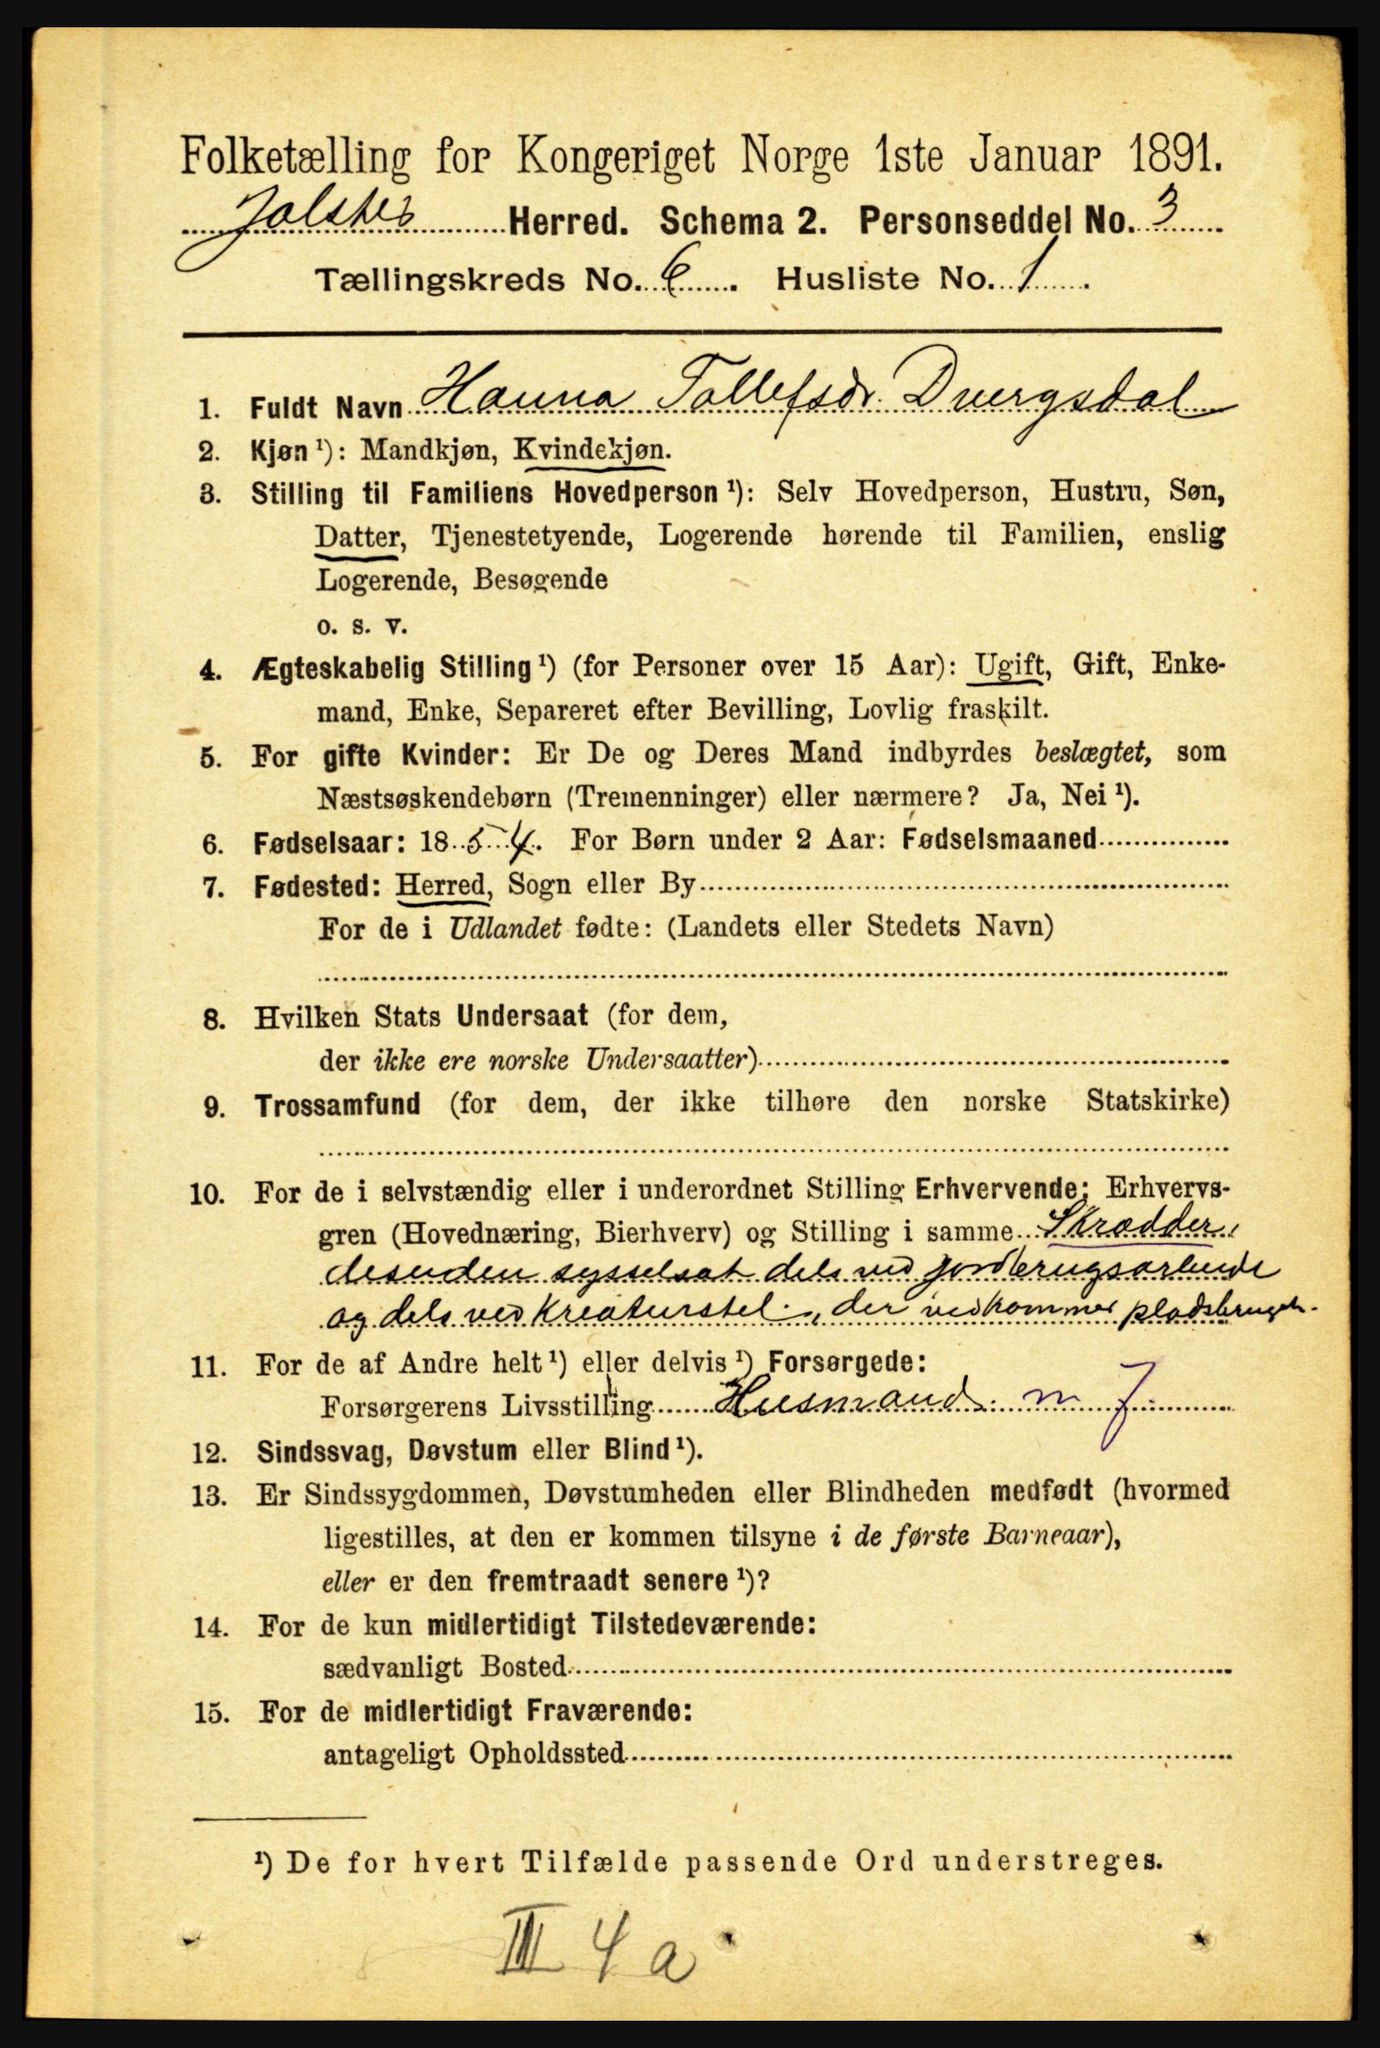 Folketælling for Kongeriget Norge 1ste Januar 1891.
Jolster Herred. Schema 2. Personseddel No. 3
Tællingskreds No. 6. Husliste No. 1.
1. Fuldt Navn Hanna Tollefsdr. Dvergsdal
2. Kjøn ¹): Mandkjøn, Kvindekjøn.
3. Stilling til Familiens Hovedperson ¹): Selv Hovedperson, Hustru, Søn,
Datter, Tjenestetyende, Logerende hørende til Familien, enslig
Logerende, Besøgende
o. s. v.
4. Ægteskabelig Stilling ¹) (for Personer over 15 Aar): Ugift, Gift, Enke-
mand, Enke, Separeret efter Bevilling, Lovlig fraskilt.
5. For gifte Kvinder: Er De og Deres Mand indbyrdes beslægtet, som
Næstsøskendebørn (Tremenninger) eller nærmere? Ja, Nei ¹).
6. Fødselsaar: 1854. For Børn under 2 Aar: Fødselsmaaned
7. Fødested: Herred, Sogn eller By
For de i Udlandet fødte: (Landets eller Stedets Navn)
8. Hvilken Stats Undersaat (for dem,
der ikke ere norske Undersaatter)
9. Trossamfund (for dem, der ikke tilhøre den norske Statskirke)
10. For de i selvstændig eller i underordnet Stilling Erhvervende: Erhvervs-
gren (Hovednæring, Bierhverv) og Stilling i samme Skrædder,
desuden sysselsat dels ved jordbrugsarbeide
og dels ved Kreaturstel, der vedkommer pladsbruget.
11. For de af Andre helt ¹) eller delvis ¹) Forsørgede:
Forsørgerens Livsstilling Husmand m J.
12. Sindssvag, Døvstum eller Blind ¹).
13. Er Sindssygdommen, Døvstumheden eller Blindheden medfødt (hvormed
ligestilles, at den er kommen tilsyne i de første Barneaar),
eller er den fremtraadt senere ¹)?
14. For de kun midlertidigt Tilstedeværende:
sædvanligt Bosted
15. For de midlertidigt Fraværende:
antageligt Opholdssted
¹) De for hvert Tilfælde passende Ord understreges.
III 4 a